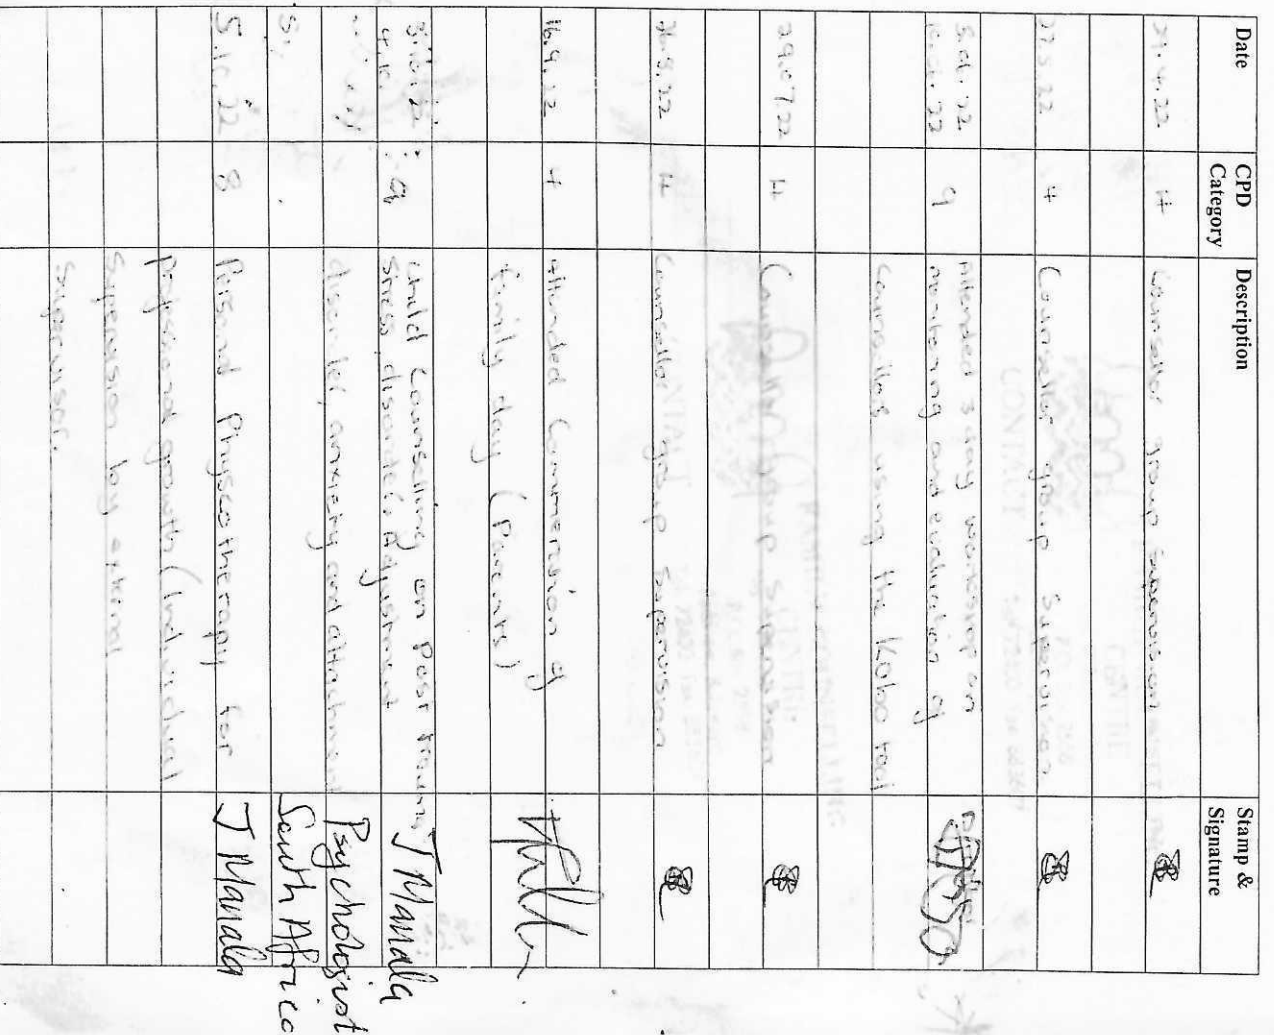 Date CPD Category Description Stamp & Signature
29.4.22 4 Counsellor group supervision
27.5.22 4 Counsellor group Supervision
Attended 3 day workshop on
.22 9 monitoring and evaluation of
Counsellors using the Kobo tool
29.07.22 4 Counsellor group Supervision
.8.22 4 Counsellor group Supervision
16.9.22 4 Attended Commemersion of
family day (Parents)
Child Counselling on Post trauma J Manala
9 Stress disorder, Adjustment
disorder, anxiety and attachment Psychologist
South Africa
5.10.22 8 Personal Physcotherapy for J Manala
professional growth (Individual
Supervision by external
Supervisor.